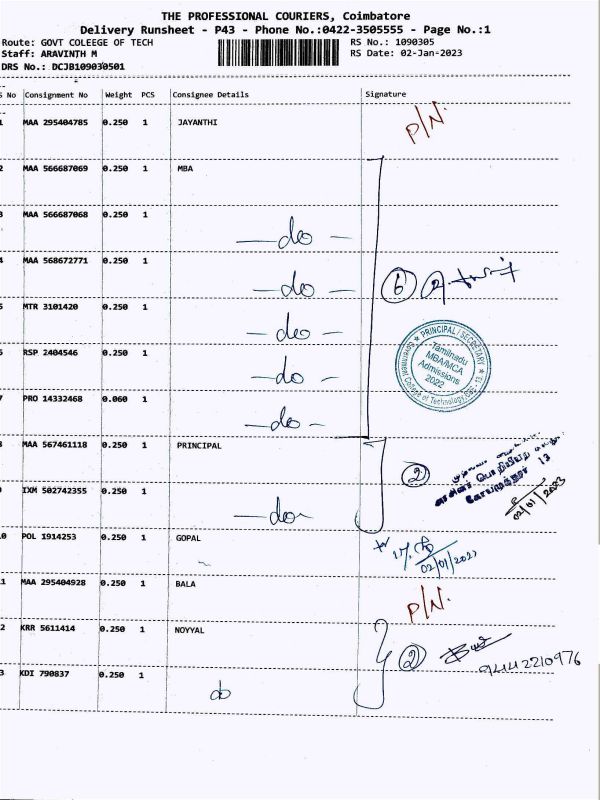 THE PROFESSIONAL COURIERS, Coimbatore
Delivery Runsheet - P43 - Phone No.:0422-3505555 - Page No.:1
Route: GOVT COLEEGE OF TECH
RS No.: 1090305
Staff: ARAVINTH M
RS Date: 02-Jan-2023
DRS No.: DCJB109030501
S No Consignment No Weight PCS Consignee Details Signature
1 MAA 295404785 0.250 1 JAYANTHI P/N.
2 MAA 566687069 0.250 1 MBA
3 MAA 566687068 0.250 1 —do—
4 MAA 568672771 0.250 1 —do— 6
5 MTR 3101420 0.250 1 —do—
6 RSP 2404546 0.250 1 —do—
PRINCIPAL / SECRETARY
Tamilnadu
MBA/MCA
Admissions
2022
Government College of Technology, CBE - 13.
7 PRO 14332468 0.060 1 —do—
8 MAA 567461118 0.250 1 PRINCIPAL 2
13
02/01/2023
9 IXM 502742355 0.250 1 —do—
10 POL 1914253 0.250 1 GOPAL
02/01/2023
11 MAA 295404928 0.250 1 BALA P/N.
12 KRR 5611414 0.250 1 NOYYAL 2
9442210976
13 KDI 790837 0.250 1 do